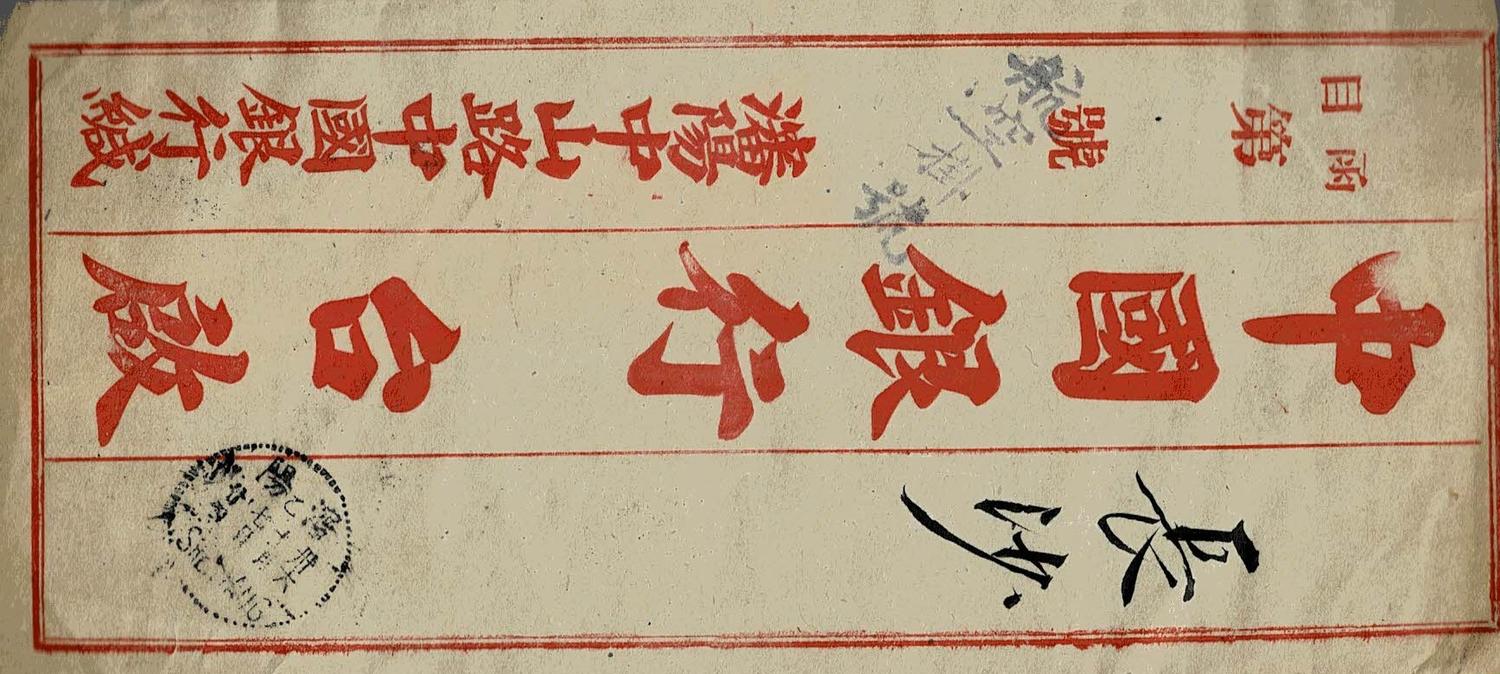 長沙
中國銀行 台啟
函目
第 號
瀋陽中山路中國銀行緘
航空掛號
瀋陽
SHENYANG